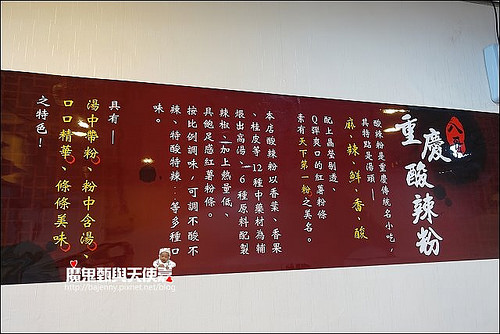 重慶酸辣粉
酸辣粉是重慶傳統名小吃，
其特點是湯頭—
麻、辣、鮮、香、酸
配上晶瑩剔透、
Q彈爽口的紅薯粉條
素有天下第一粉之美名。
本店酸辣粉以香葉、香果
、桂皮等12種中藥材為輔
煨出高湯，16種原料配製
辣椒，加上熱量低、
具飽足感紅薯粉條。
按比例調味，可調不酸不
辣、特酸特辣…等多種口
味。
具有—
湯中帶粉、粉中含湯、
口口精華、條條美味
之特色！
魔鬼甄與天使
http://bajenny.pixnet.net/blog